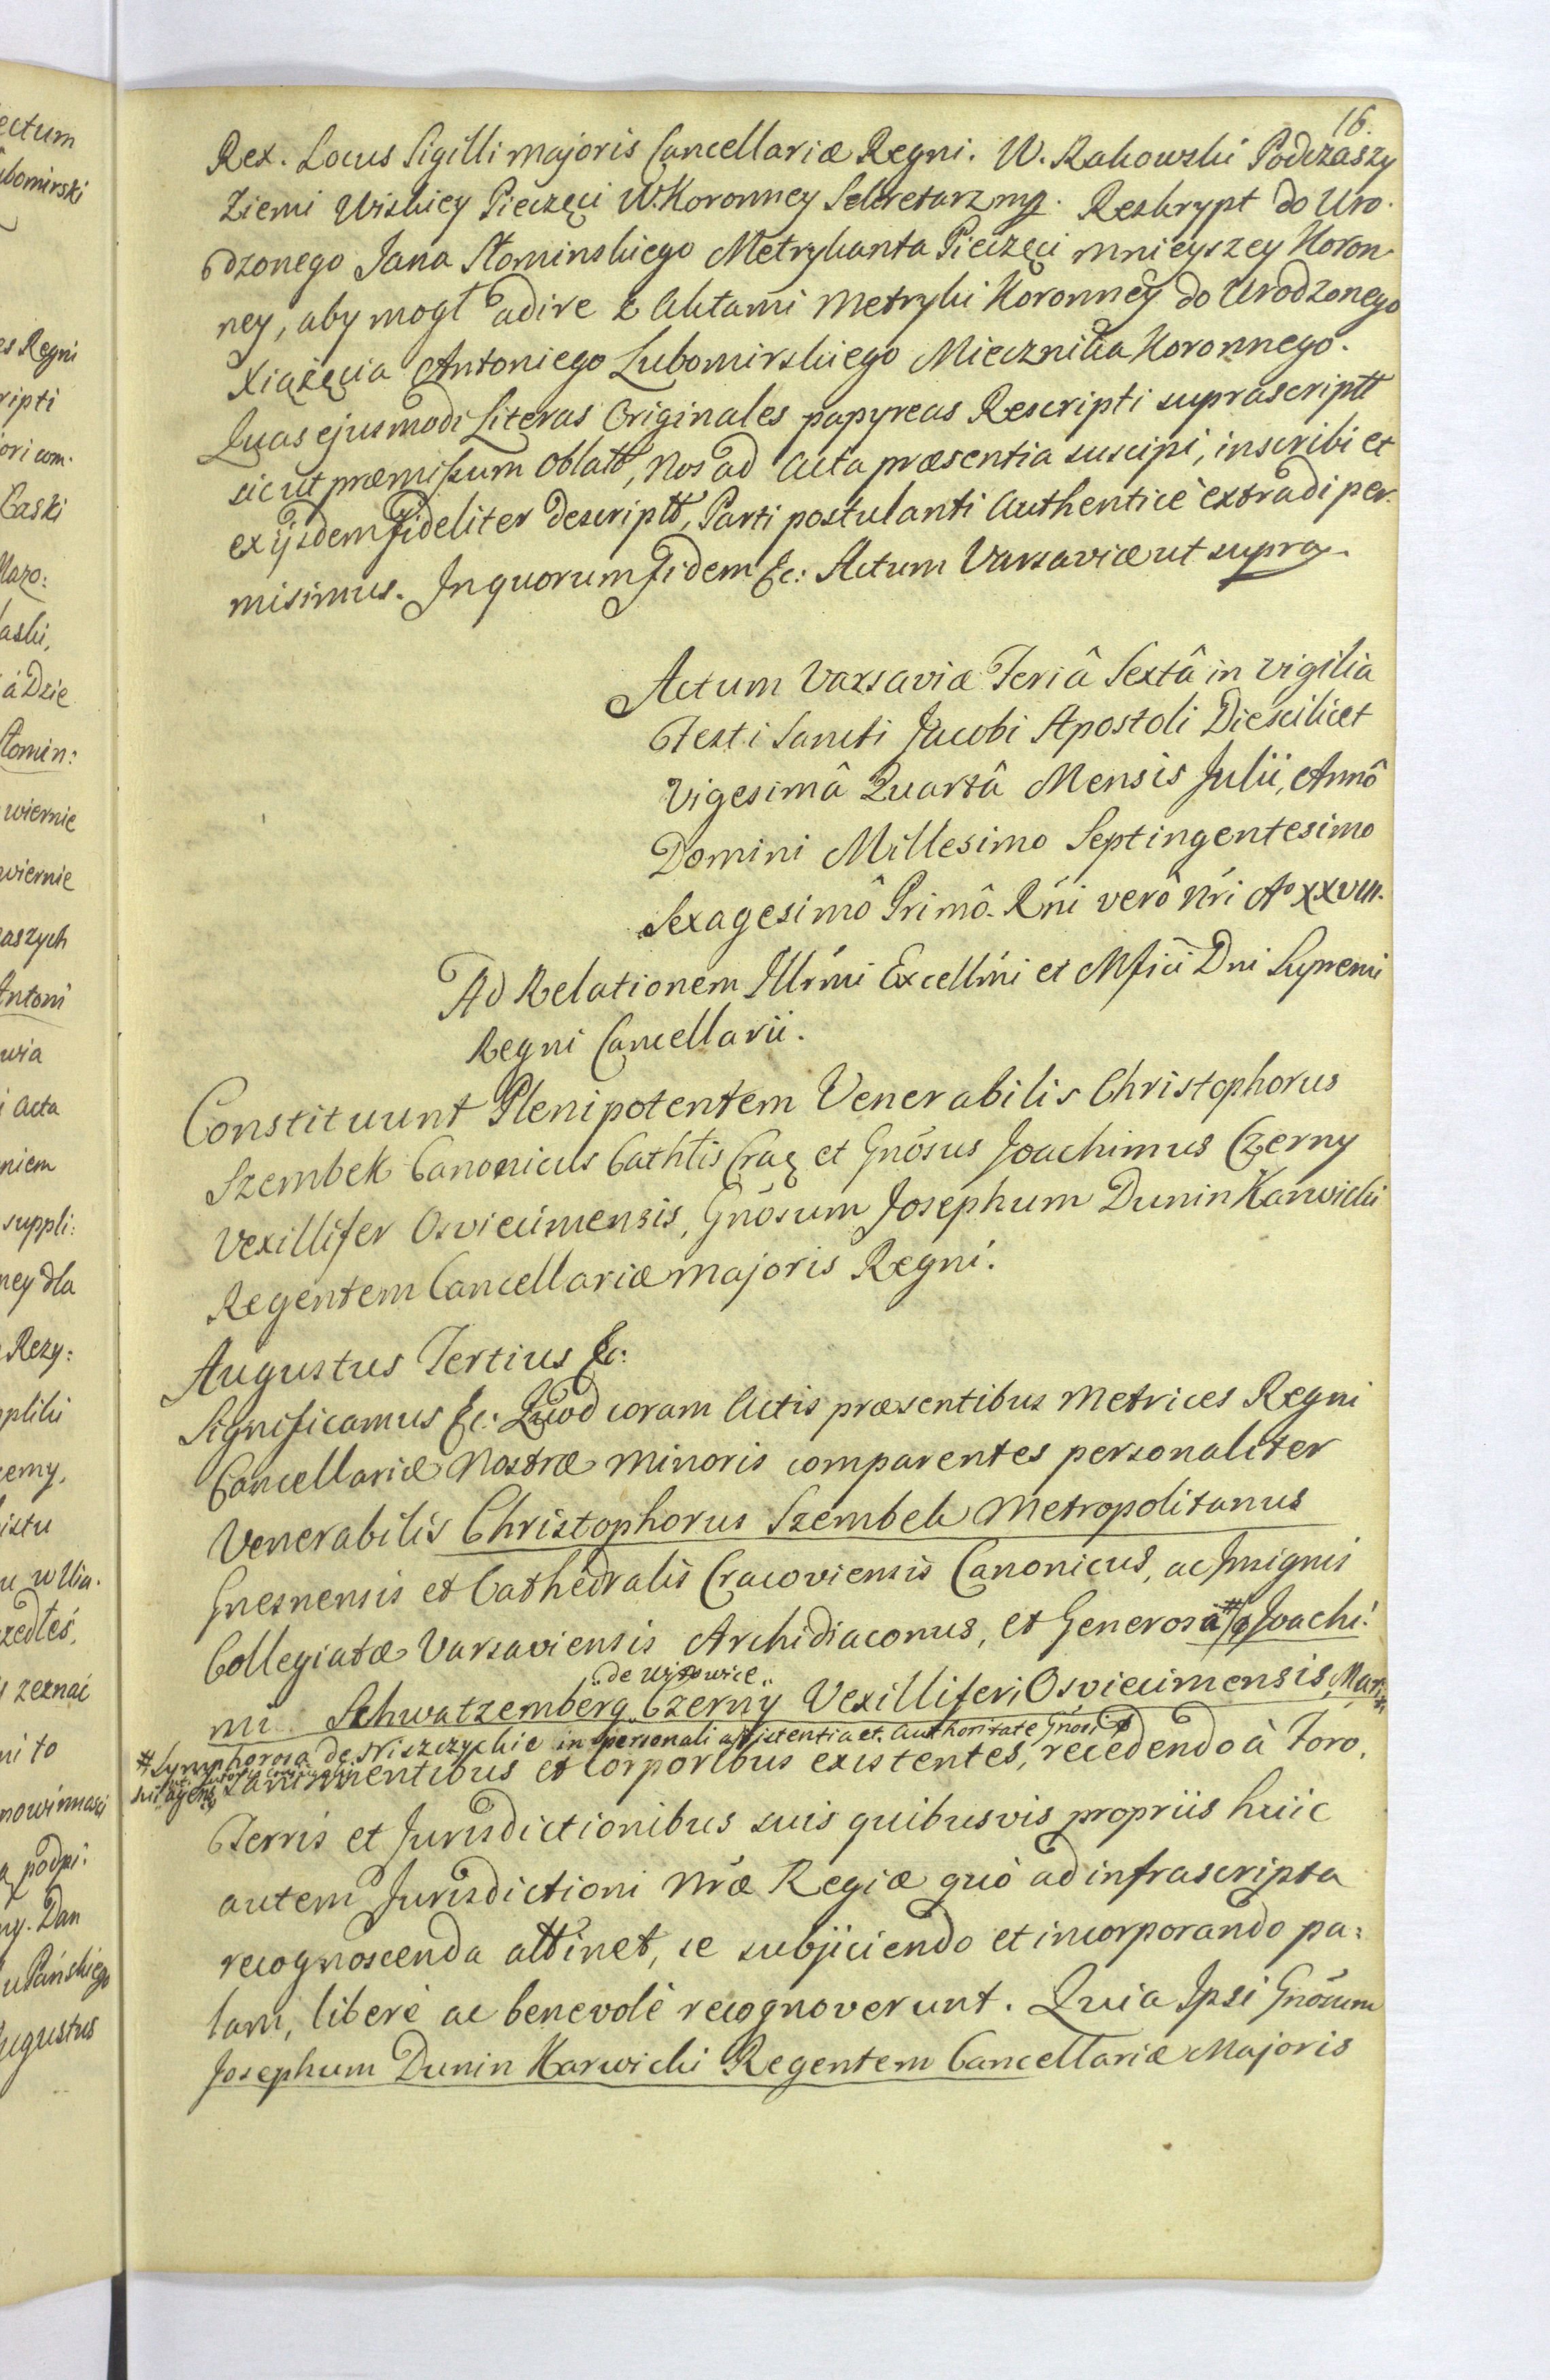 16.
Rex. Locus Sigilli majoris Cancellariæ Regni. W. Rakowski Podczaszy
Ziemi Wiskiey Pieczęci W. Koronney Sekretarz mp. Reskrypt do Uro-
dzonego Jana Słominskiego Metrykanta Pieczęci mnieyszey Koron-
ney, aby mogł adire z Aktami Metryki Koronney do Urodzonego
Xiążęcia Antoniego Lubomirskiego Miecznika Koronnego.
Quas ejusmodi Literas Originales papyreas Rescripti suprascriptt
sicut præmissum oblatt, Nos ad Acta præsentia suscipi, inscribi et
ex ijsdem fideliter descriptt, Parti postulanti Authenticè extradi per-
misimus. In quorum Fidem &c: Actum Varsaviæ ut supra.
Actum Varsaviæ Feriâ Sextâ in Vigilia
Festi Sancti Jacobi Apostoli Die scilicet
Vigesimâ Quartâ Mensis Julii, Annô
Domini Millesimo Septingentesimo
Sexagesimô Primô. Rñi verô Nři Aº XXVIII.
Ad Relationem Illr̃mi Excellm̃i et Mfici Dni Supremi
Regni Cancellarii.
Constituunt Plenipotentem Venerabilis Christophorus
Szembek Canonicus Cathlis Crac et Gnõsus Joachimus Czerny
Vexillifer Osviecimensis, Gnõsum Josephum Dunin Karwicki
Regentem Cancellariæ majoris Regni.
Augustus Tertius &c:
Significamus &c: Quod coram Actis præsentibus Metrices Regni
Cancellariæ Nostræ Minoris comparentes personaliter
Venerabilis Christophorus Szembek Metropolitanus
Gnesnensis et Cathedralis Cracoviensis Canonicus, ac Insignis
Collegiatæ Varsaviensis Archidiaconus, et Generosa # Joachi:
de Witowice
mi Schwatzemberg Czerny Vexilliferi Osviecimensis, Mari-
# Symphorosa de Niszczychie in personali assistentia et Authoritate Gnõsi #
ti agens mentibus et Corporibus existentes, recedendo à Foro,
Terris et Jurisdictionibus suis quibusvis propriis huic
autem Jurisdictioni Nr̃æ Regiæ quò ad infrascripta
recognoscenda attinet, se subjiciendo et incorporando pa-
lam, liberè ac benevolè recognoverunt. Quia Ipsi Gnõsum
Josephum Dunin Karwicki Regentem Cancellariæ Majoris